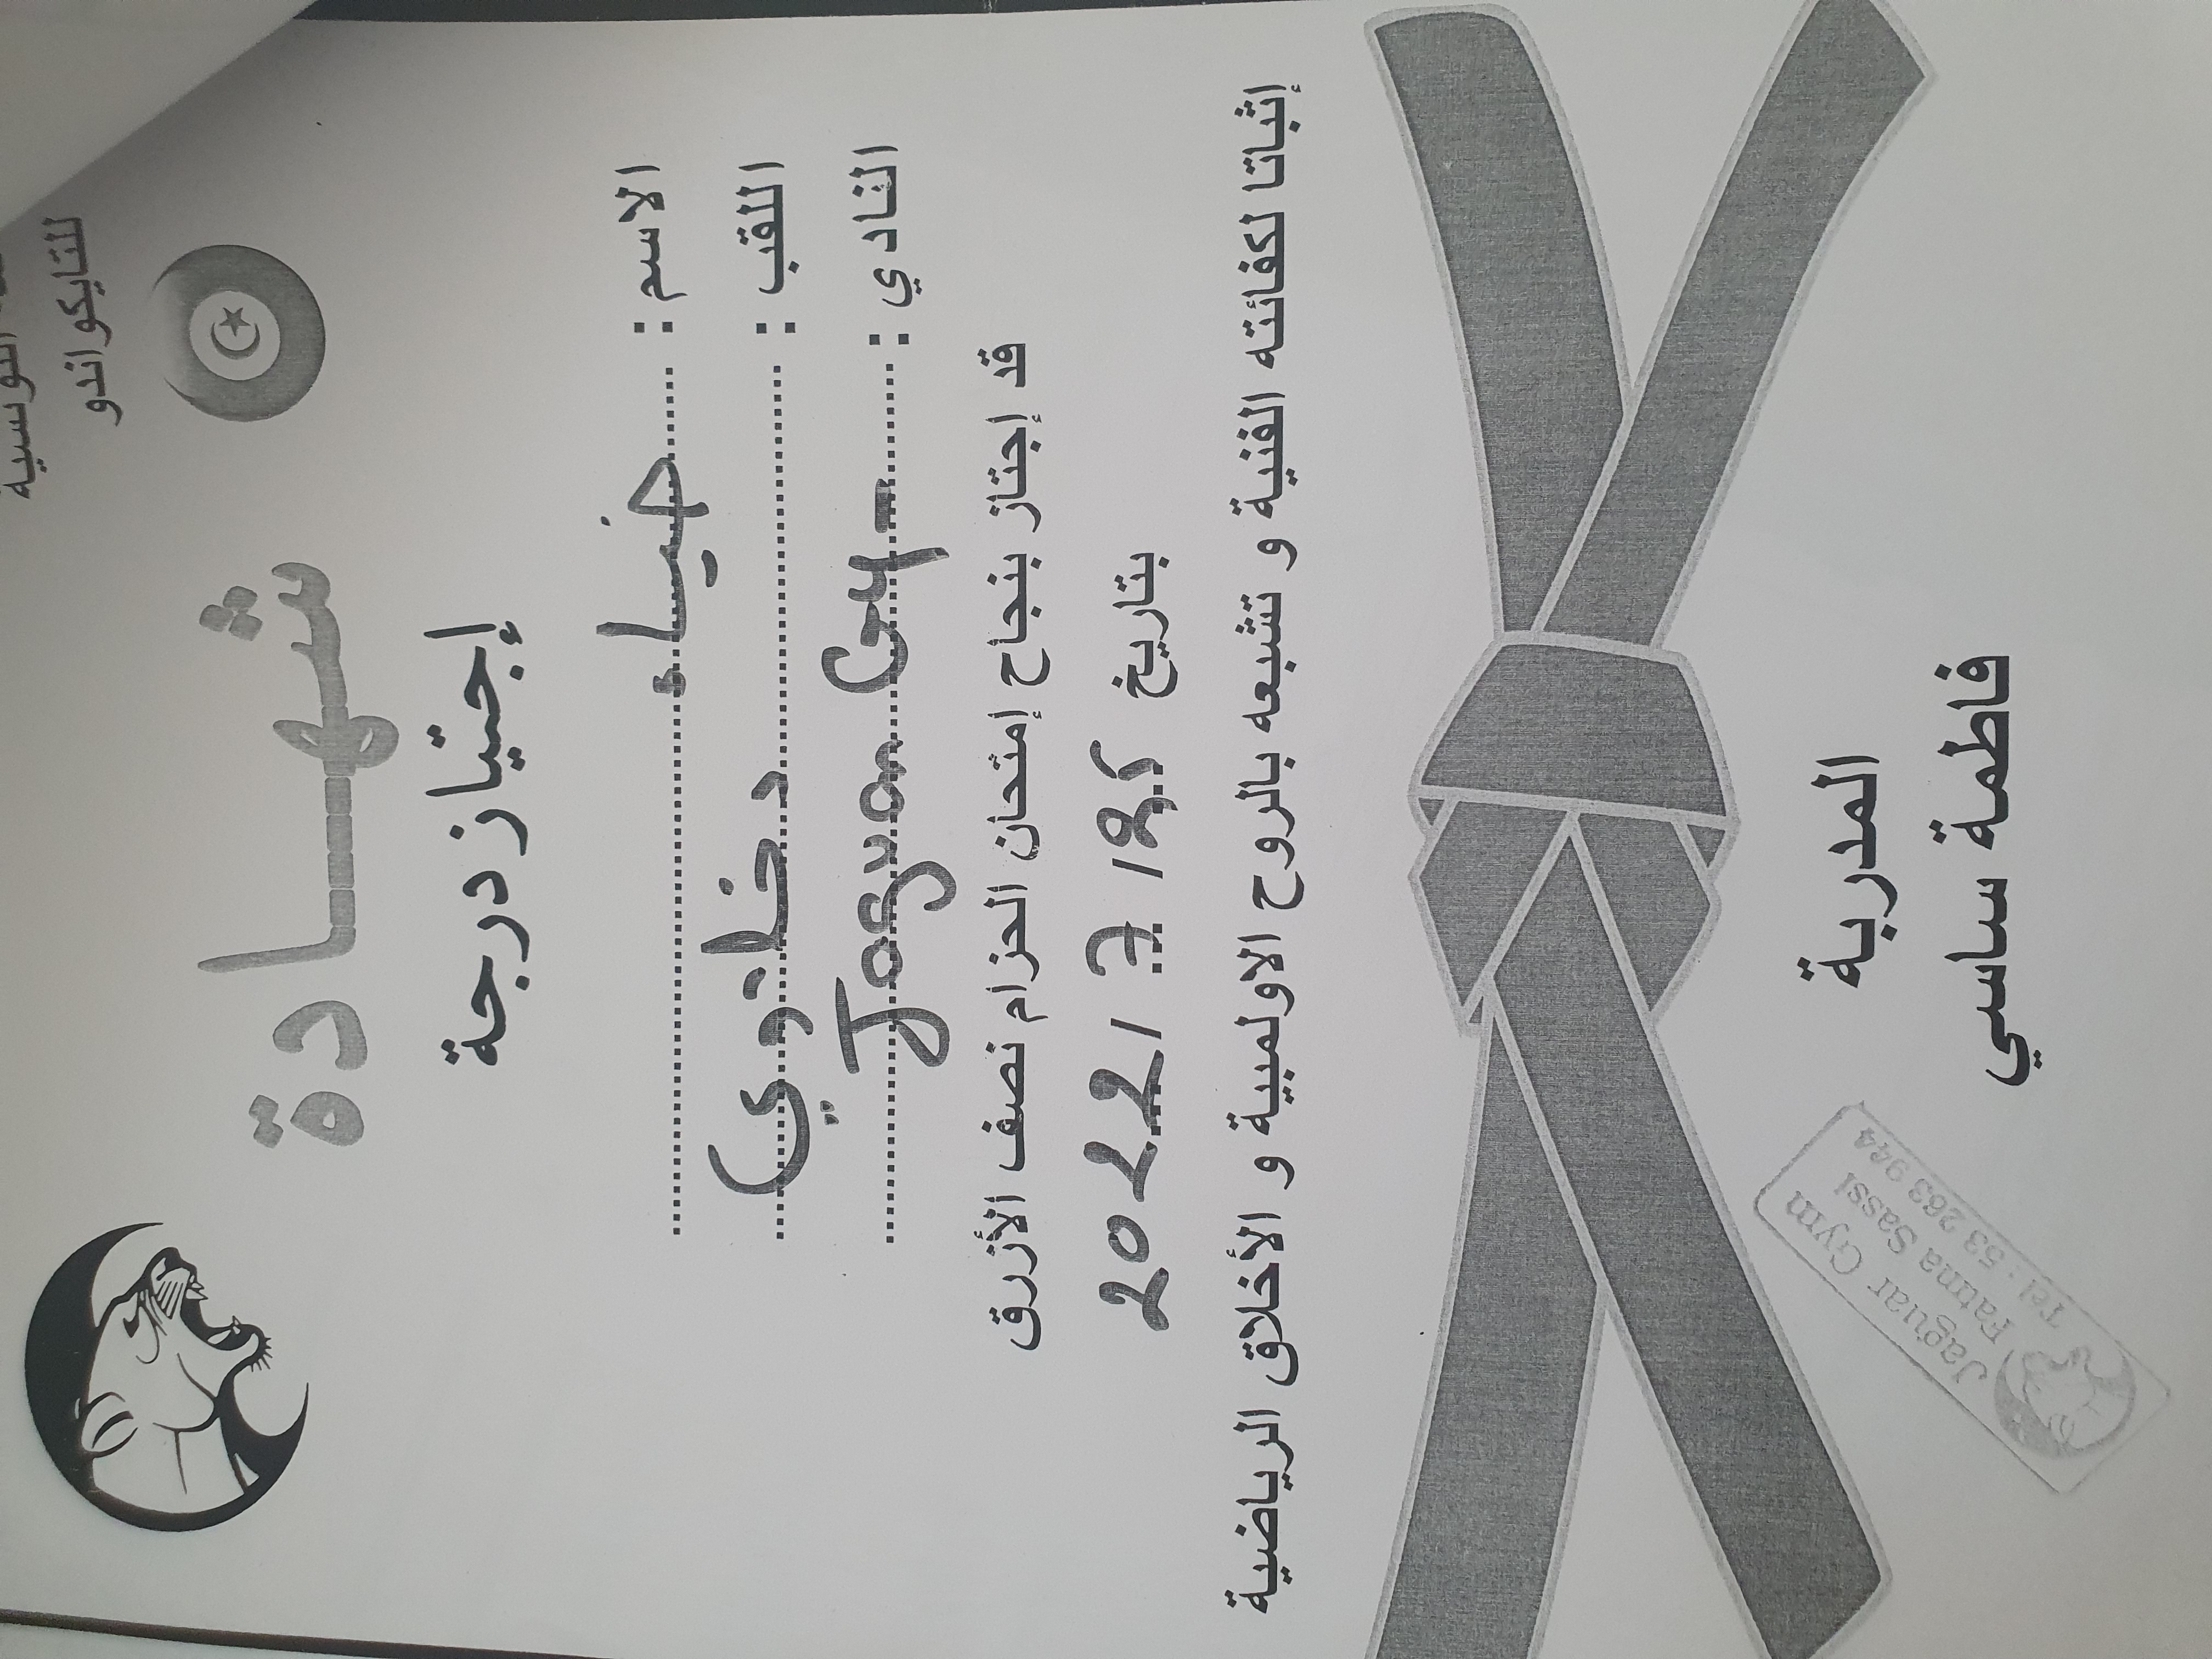 التونسية
للتايكواندو
شهادة
إجتياز درجة
الاسم : ضياء
اللقب : دخلاوي
النادي : Jaguar Gym
قد إجتاز بنجاح إمتحان الحزام نصف الأزرق
بتاريخ 2022/7/25
إثباتا لكفائته الفنية و تشبعه بالروح الاولمبية و الأخلاق الرياضية
المدربة
فاطمة ساسي
Jaguar Gym
Fatma Sassi
Tel : 53 263 944